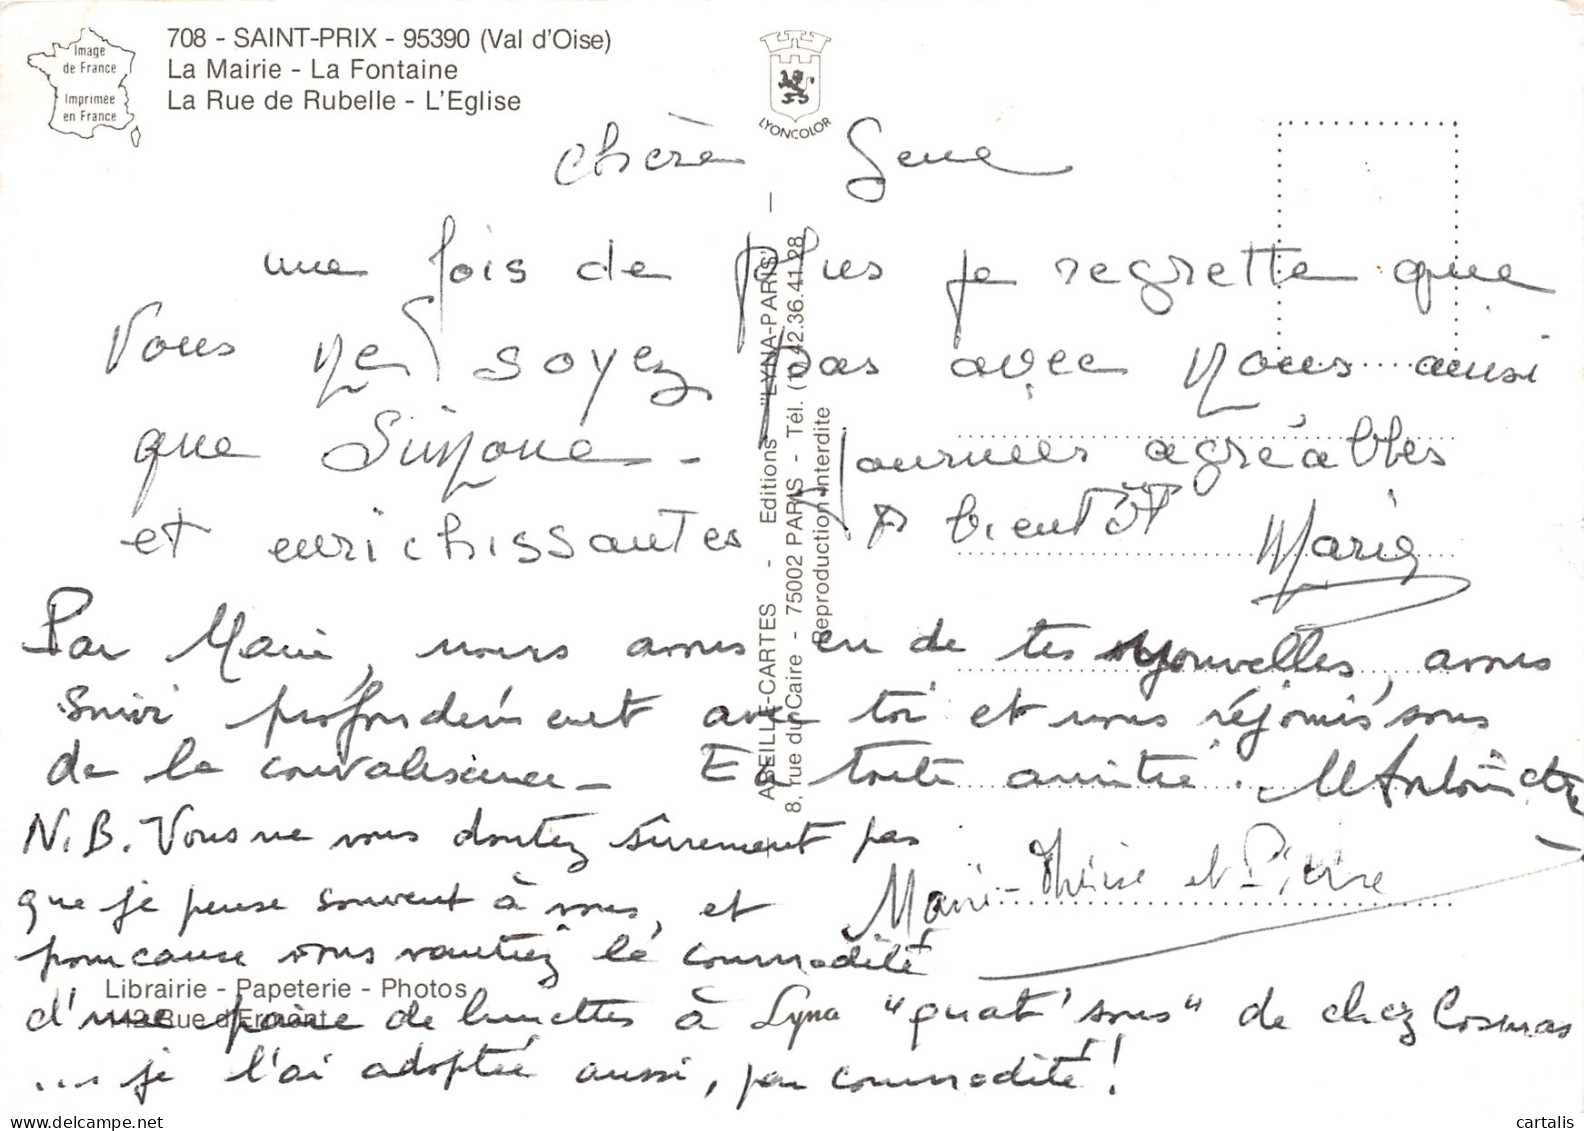 Image
de France
Imprimée
en France
708 - SAINT-PRIX - 95390 (Val d'Oise)
La Mairie - La Fontaine
La Rue de Rubelle - L'Eglise
LYONCOLOR
chère
une fois de plus je regrette que
Vous ne soyez pas avec nous aussi
que Simone - Journées agréables
et enrichissantes A bientôt Marie
Par Marie, nous avons eu de tes nouvelles, avons
suivi profondément avec toi et nous réjouissons
de la convalescence - En toute amitié. M Antoinette
N.B. Vous ne vous doutez sûrement pas
que je pense souvent à vous, et
pour cause vous vantiez la commodité
d'une paire de lunettes à "quat'sous" de chez Cosmas
... je l'ai adoptée aussi, par commodité!
Marie-Thérèse et Pierre
ABEILLE-CARTES - Editions "LYNA-PARIS"
8, rue du Caire - 75002 PARIS - Tél. (1) 42.36.41.28
Reproduction interdite
Librairie - Papeterie - Photos
Lyna
Rue d'Ermont
cartalis